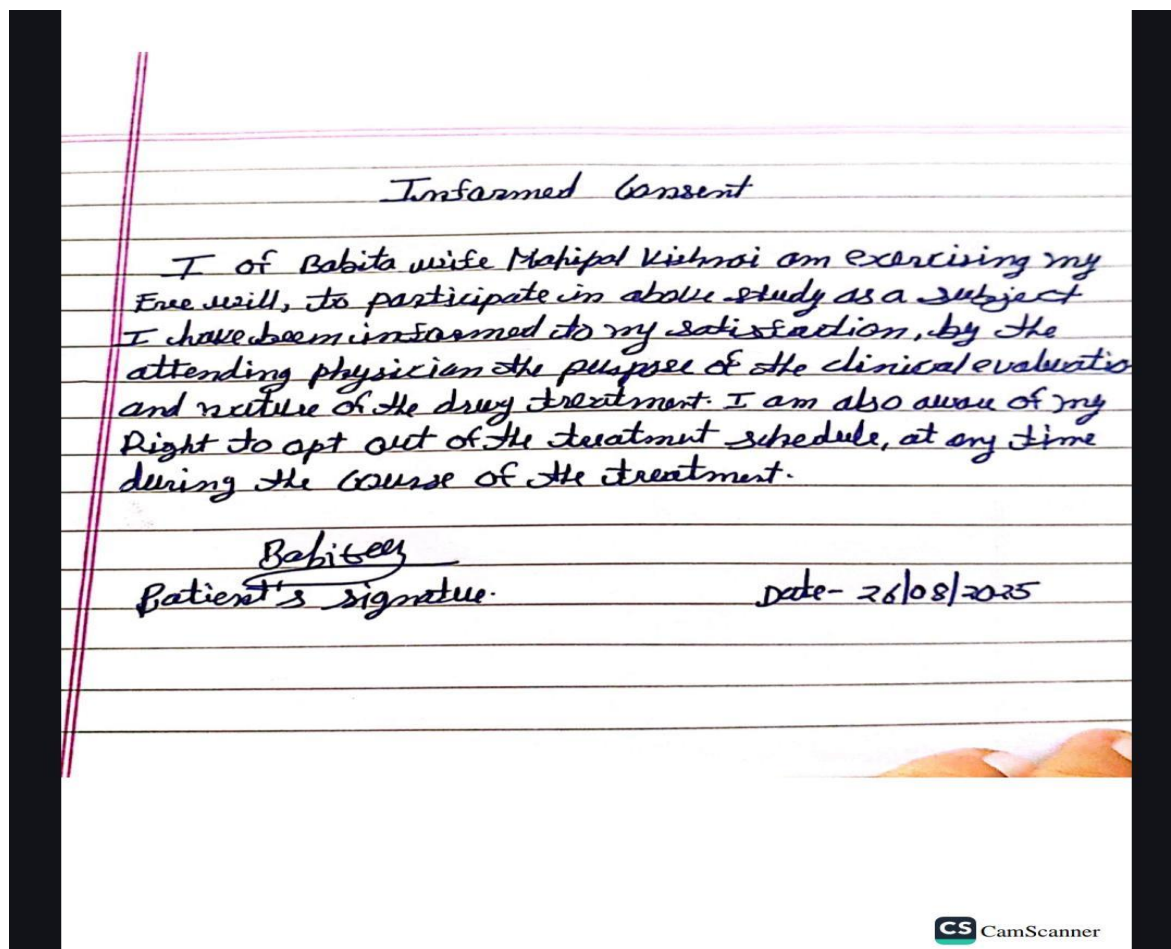 Informed Consent
I of Babita wife Mahipal Vishnoi am exercising my
Free will, to participate in above study as a subject
I have been informed to my satisfaction, by the
attending physician the purpose of the clinical evaluatio
and nature of the drug treatment. I am also aware of my
Right to opt out of the treatment schedule, at any time
during the course of the treatment.
Patient's signatue. Date- 26/08/2025
CS CamScanner